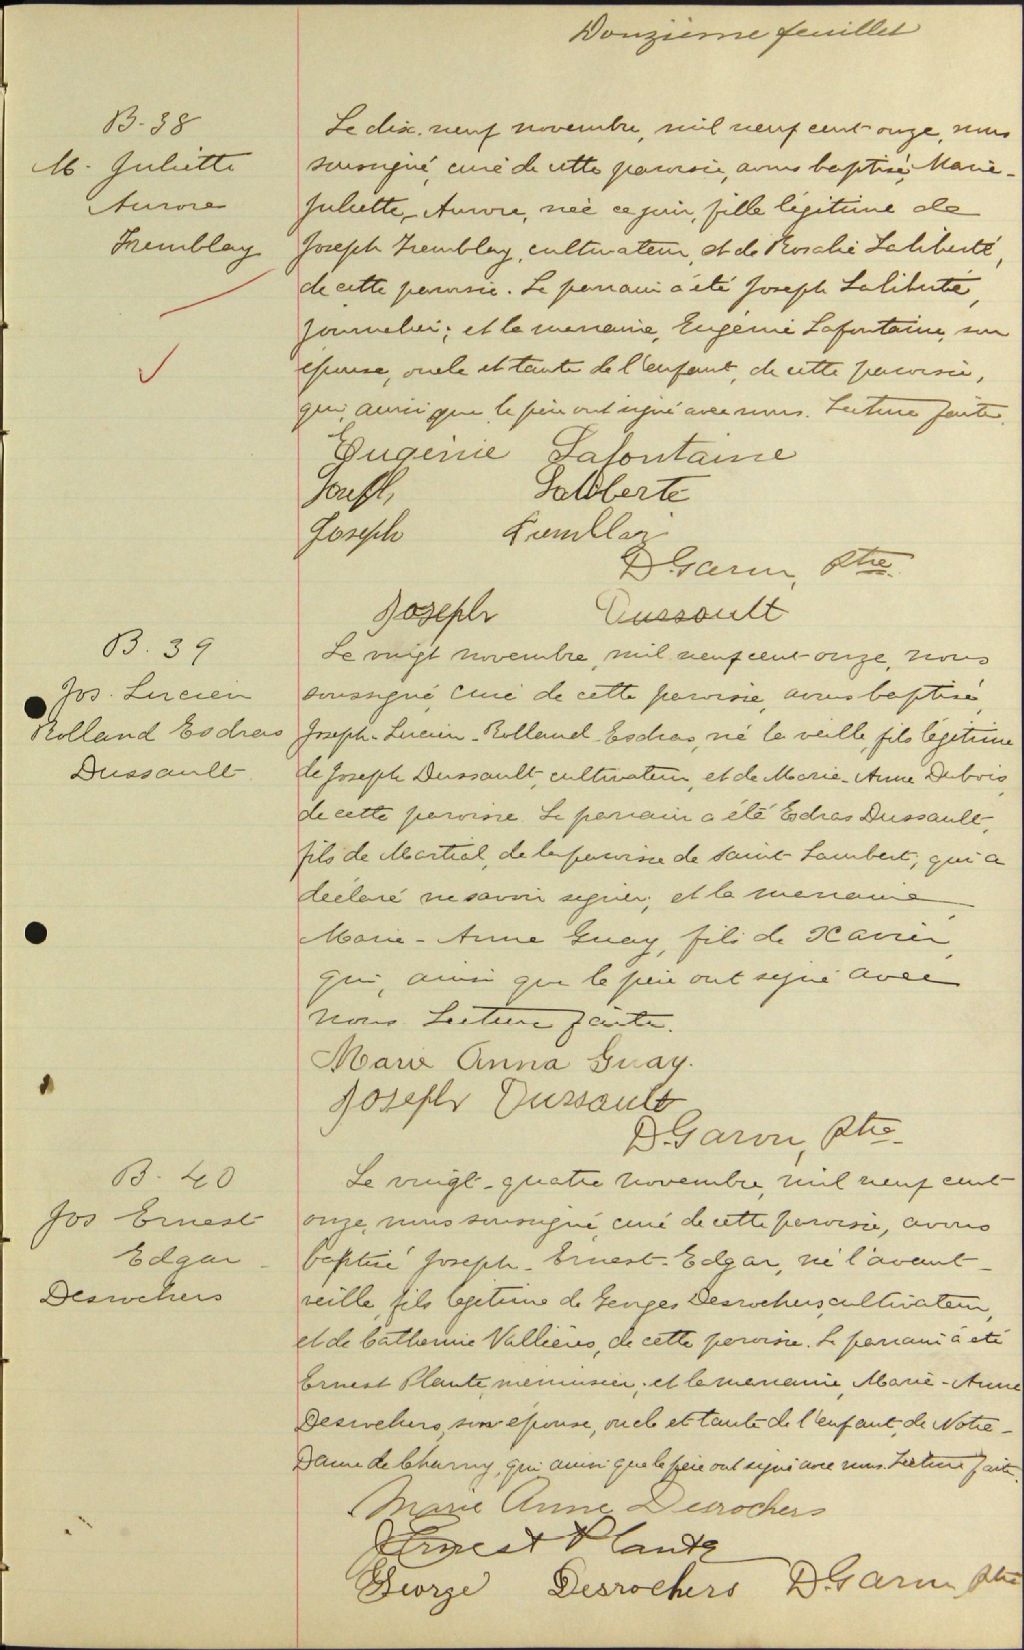 Douzième feuillet
B. 38
M. Juliette
Aurore
Tremblay
Le dix-neuf novembre, mil neuf cent onze, nous
soussigné, curé de cette paroisse, avons baptisé, Marie-
Juliette, Aurore, née ce jour, fille légitime de
Joseph Tremblay, cultivateur, et de Rosalie Laliberté,
de cette paroisse. Le parrain a été Joseph Laliberté,
journalier; et la marraine, Eugénie Lafontaine, son
épouse, oncle et tante de l'enfant, de cette paroisse,
qui, ainsi que le père ont signé avec nous. Lecture faite.
Eugénie Lafontaine
Joseph Laliberté
Joseph Tremblay
D. Garon, Ptre
Joseph Dussault
B. 39
Jos. Lucien
Rolland Esdras
Dussault
Le vingt novembre, mil neuf cent onze, nous
soussigné, curé de cette paroisse, avons baptisé,
Joseph-Lucien-Rolland-Esdras, né la veille, fils légitime
de Joseph Dussault, cultivateur, et de Marie-Anne Dubois,
de cette paroisse. Le parrain a été Esdras Dussault,
fils de Martial, de la paroisse de Saint-Lambert, qui a
déclaré ne savoir signer; et la marraine
Marie-Anne Guay, fille de Xavier,
qui, ainsi que le père ont signé avec
nous. Lecture faite.
Marie Anna Guay.
Joseph Dussault
D. Garon, Ptre
B. 40
Jos Ernest
Edgar
Desrochers
Le vingt-quatre novembre, mil neuf cent
onze, nous soussigné, curé de cette paroisse, avons
baptisé Joseph-Ernest-Edgar, né l'avant-
veille, fils légitime de Georges Desrochers, cultivateur,
et de Catherine Vallières, de cette paroisse. Le parrain a été
Ernest Plante, menuisier, et la marraine, Marie-Anne
Desrochers, son épouse, oncle et tante de l'enfant, de Notre-
Dame de Charny, qui ainsi que le père ont signé avec nous. Lecture faite.
Marie Anne Desrochers
Ernest Plante
George Desrochers D. Garon Ptre